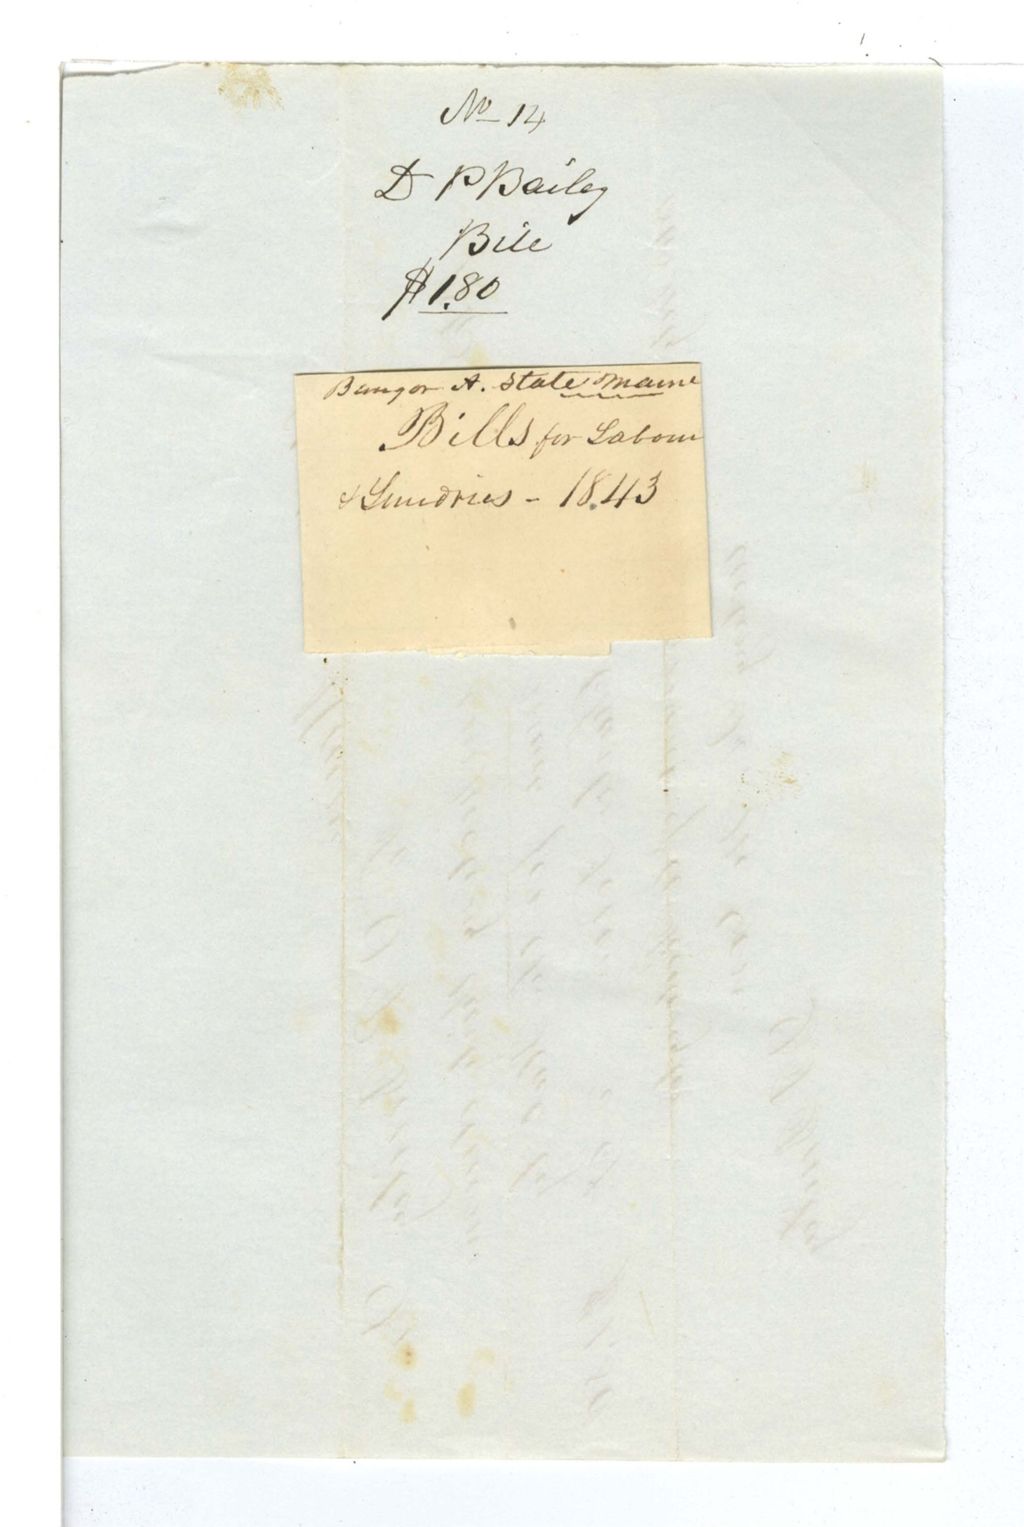 No 14
D P Bailey
Bill
$1.80
Bangor A. State Maine
Bills for Labour
& Sundries - 1843